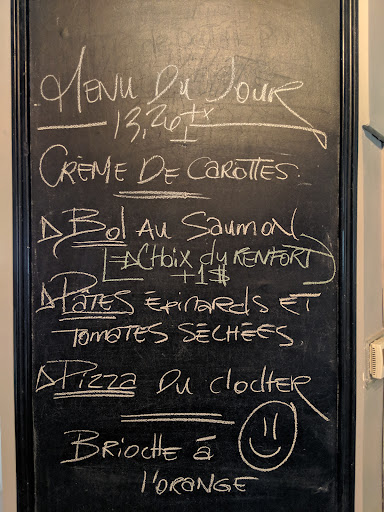 MENU DU JOUR
13,26+tx
CRÈME DE CAROTTES
BOL AU SAUMON
CHOIX du RENFORT
+1$
PÂTES ÉPINARDS ET
TOMATES SÉCHÉES
PIZZA DU clocHER
BRIOCHE à
l'ORANGE